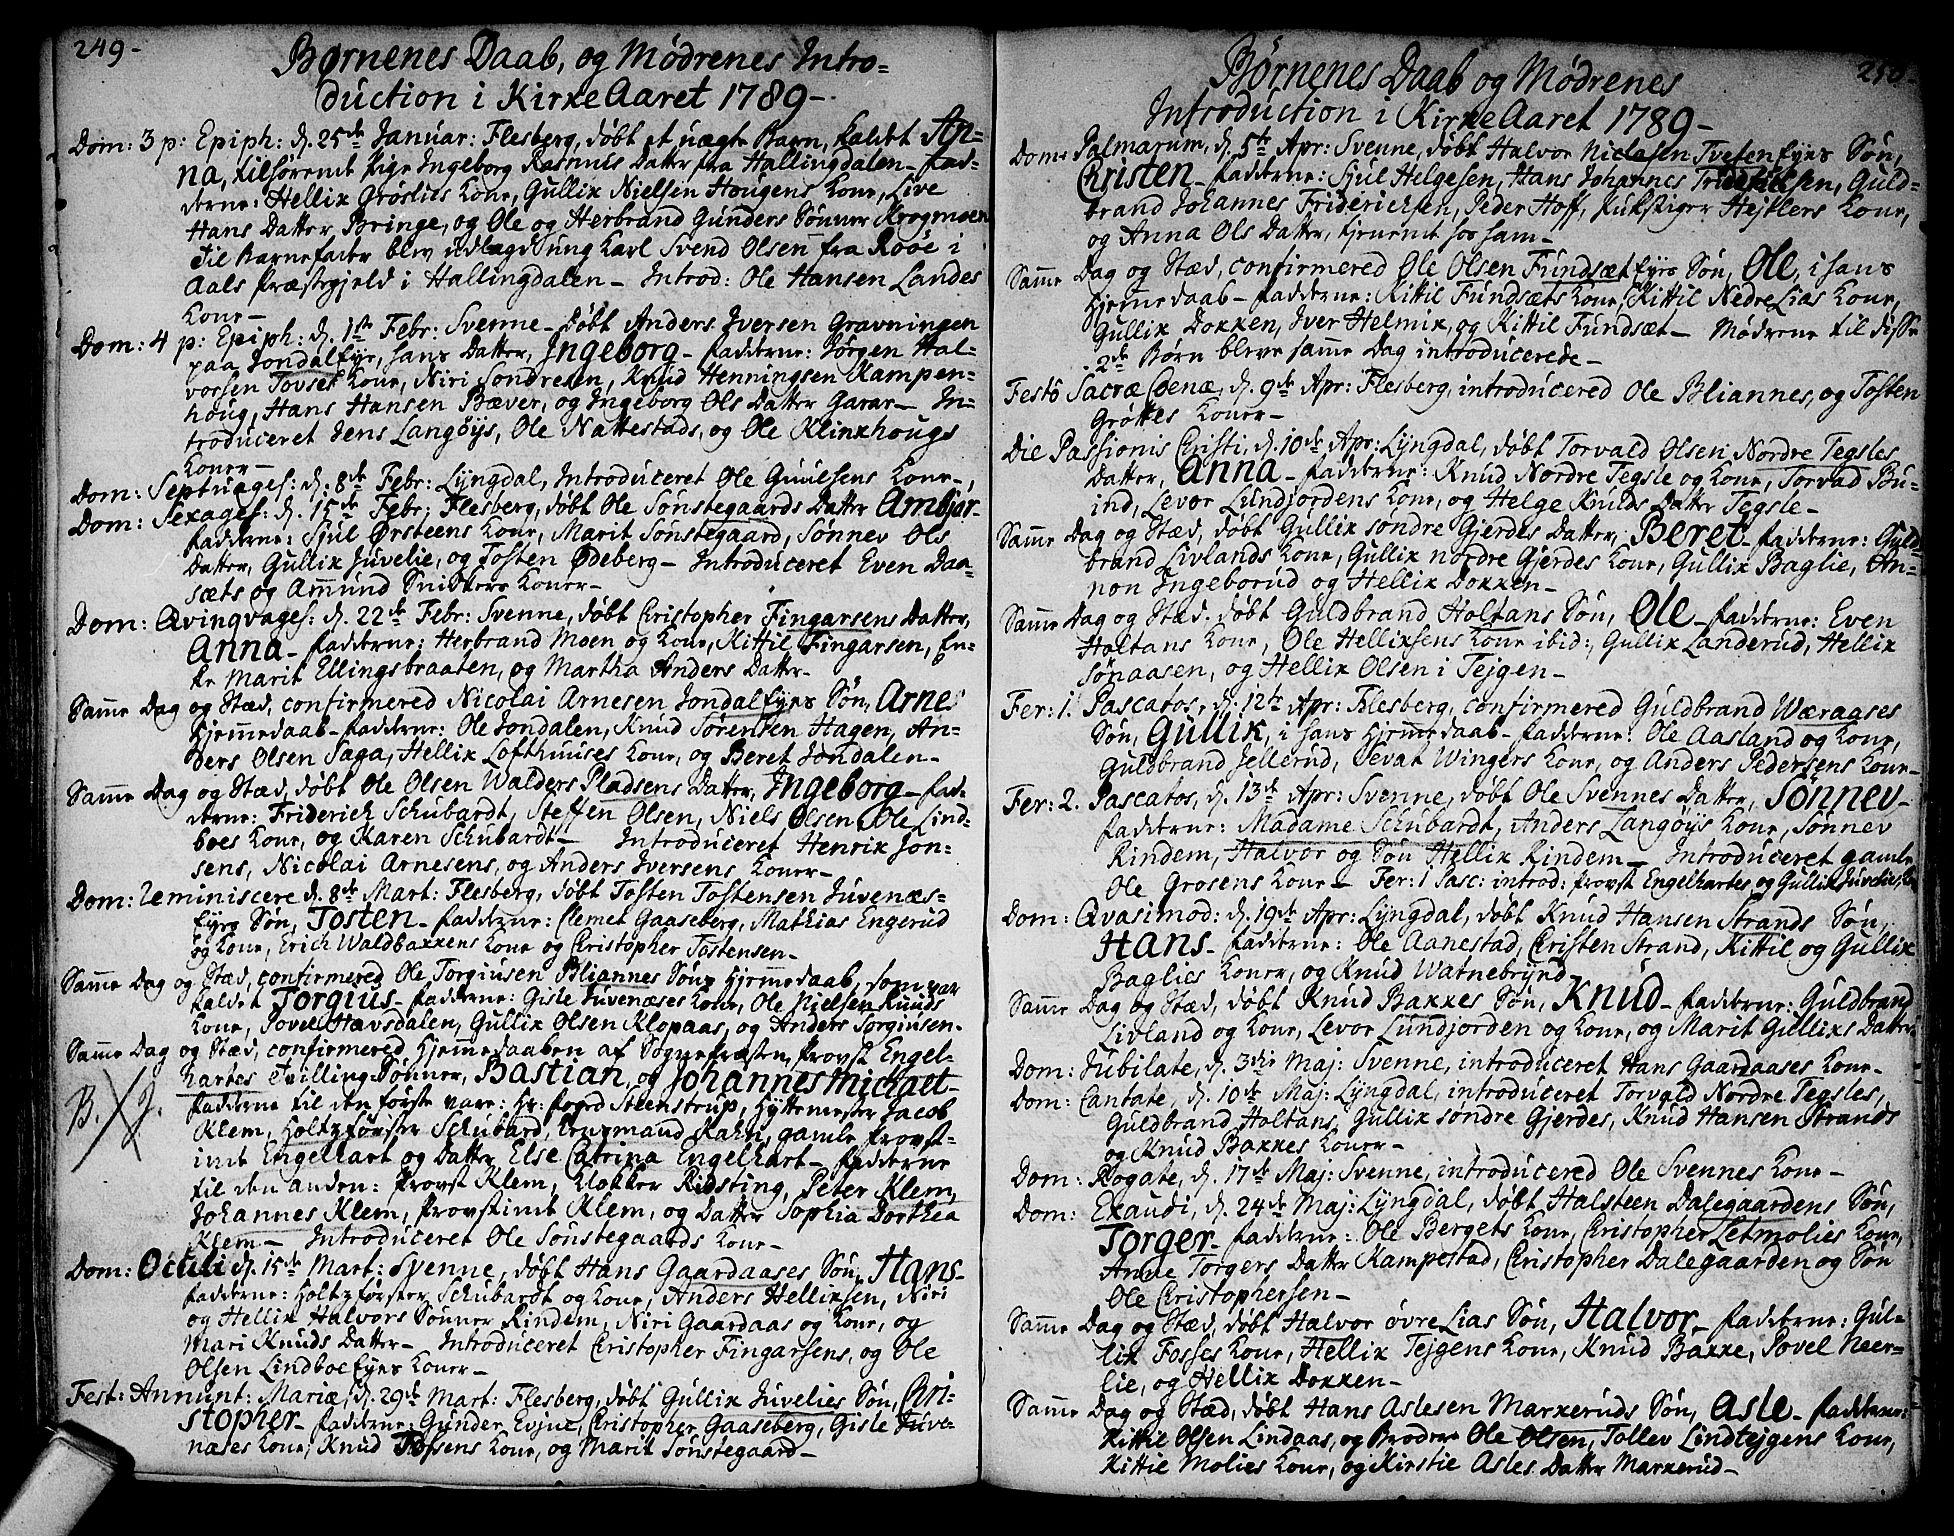 249-
Børnenes Daab, og Mødrenes Intro=
duction i Kirke Aaret 1789-
Dom: 3 p: Epiph: d. 25de Januar: Flesberg, døbt et uægte Barn, kaldet An=
na, tilhørende Pige Ingeborg Rasmus Datter fra Hallingdalen- Fad=
derne: Hellik Grøslies Kone, Gullik Nielsen Hougens Kone, Live
Hans Datter, Bringe, og Ole og Herbrand Gunders Sønner Krogmoen
Til Barnefader blev udlagd Ung Karl Svend Olsen fra Roøe i
Aals Præstegjeld i Hallingdalen- Introd: Ole Hansen Landes
Kone-
Dom: 4 p: Epiph: d. 1ste Febr: Svenne- døbt Anders Iversen Gravningen
paa Jondal Eyer, hans Datter, Ingeborg- Fadderne: Jørgen Hal=
vorsen Tovset Kone, Niri Sondresen, Knud Henningsen Kampen=
houg, Hans Hansen Bæver, og Ingeborg Ols Datter Garar- In=
troduceret Jens Langøys, Ole Nattestads, og Ole Klinkhougs
Koner-
Dom: Septuages: d. 8de Febr: Lyngdal, Introduceret Ole Guulsens Kone-
Dom: Sexages: d. 15de Febr: Flesberg, døbt Ole Sønstegaards Datter Ambjør-
Fadderne: Sjul Ørsteens Kone, Marit Sønstegaard, Sønnev Ols
Datter, Gullik Juvelie, og Tosten Ødeberg- Introduceret Even Daa=
sæts og Ammund Snikkers Koner-
Dom: Qvinqvages: d. 22de Febr: Svenne, døbt Christopher Fingarsens Datter,
Anna- Fadderne: Herbrand Moen og Kone, Kittil Fingarsen, En=
ke Marit Ellingsbraaten, og Martha Anders Datter-
Samme Dag og Stæd, confirmered Nicolai Arnesen Jondal Eyes Søn, Arnes
Hjemmedaab- Fadderne: Ole Jondalen, Knud Sørensen Hagen, An=
ders Olsen Saga, Hellik Lofthuuses Kone, og Beret Jondalen-
Samme Dag og Stæd, døbt Ole Olsen Walders Pladsens Datter, Ingeborg- Fad=
derne: Friderich Schubardt, Steffen Olsen, Niels Olsen, Ole Lind=
boes Kone, og Karen Schubardt- Introduceret Henrik Jon=
sens, Nicolai Arnesens, og Anders Iversens Koner-
Dom: Reminiscere d. 8de Mart: Flesberg, døbt Tosten Tostensen Juvenæs=
Eyes Søn, Tosten- Fadderne: Clemet Gaaseberg, Mathias Engerud
og Kone, Erich Waldbakkens Kone og Christopher Tostensen-
Samme Dag og Stæd, confirmered Ole Torgiusen Bliannes Søns Hjemmedaab, som var
kaldet Torgius- Fadderne: Gisle Juvenæses Kone, Ole Nielsen Ruuds
Kone, Povel Havsdalen, Gullik Olsen Klopaas, og Anders Torgiusen-
Samme Dag og Stæd, confirmered Hjemmedaaben af Sognepræsten, Provst Engel=
hartes Tvilling Sønner, Bastian, og Johannes Michael-
B. J.
Fadderne til den første vare: Hr: Foged Steenstrup, Hyttemester Jacob
Klem, Holtzførster Schubard, Krugmand Rahn, gamle Provst=
inde Engelhart og Datter Else Catrina Engelhart- Fadderne
til den anden: Provst Klem, Klokker Ridsting, Peter Klem,
Johannes Klem, Provstinde Klem, og Datter Sophia Dorthea
Klem- Introduceret Ole Sønstegaards Kone-
Dom: Oculi d. 15de Mart: Svenne, døbt Hans Gaardaases Søn, Hans-
Fadderne: Holtzførster Schubardt og Kone, Anders Helliksen, Niri
og Hellik Halvors Sønner Rindem, Niri Gaardaas og Kone, og
Mari Knuds Datter- Introduceret Christopher Fingarsens, og Ole
Olsen Lindboe Eyes Koner-
Fest: Annunt: Mariæ, d. 29de Mart: Flesberg, døbt Gullik Juvelies Søn, Chri=
stopher- Fadderne: Gunder Evjue, Christopher Gaaseberg, Gisle Juve=
næses Kone, Knud Kone, og Marit Sønstegaard-
250-
Børnenes Daab og Mødrenes
Introduction i Kirke Aaret 1789-
Dom: Palmarum, d. 5te Apr: Svenne, døbt Halvor Niclasen Tveten Eyes Søn,
Christen- Fadderne: Sjul Helgesen, Hans Johannes Fridriksen, Guld=
brand Johannes Friderichsen, Peder Hoff, Pukstiger Hejtlers Kone,
og Anna Ols Datter, tjenende hos ham-
Samme Dag og Stæd, confirmered Ole Olsen Fundsæt Eyes Søn, Ole, i hans
Hjemmedaab- Fadderne: Kittil Fundsæts Kone, Kittil Nedre Lias Kone,
Gullik Dokken, Iver Helmik, og Kittil Fundsæt- Mødrene til disse
2de Børn bleve samme Dag introducerede-
Festo Sacræ Coenæ, d. 9de Apr: Flesberg, introducered Ole Bliannes, og Tosten
Grøttes Koner-
Die Passionis Christi, d. 10de Apr: Lyngdal, døbt Torvald Olsen Nordre Tegsles
Datter, Anna- Fadderne: Knud Nordre Tegsle og Kone, Torvad Bu=
ind, Levor Lundjordens Kone, og Helge Knuds Datter Tegsle-
Samme Dag og Stæd, døbt Gullik søndre Gjerdes Datter, Beret- Fadderne: Guld=
brand Livlands Kone, Gullik nordre Gjerdes Kone, Gullik Baglie, An=
non Ingeborud og Hellik Dokken-
Samme Dag og Stæd, døbt Guldbrand Holtans Søn, Ole- Fadderne: Even
Holtans Kone, Ole Helliksens Kone ibid:, Gullik Landerud, Hellik
Sønaasen, og Hellik Olsen i Tejgen-
Fer: 1. Pascatos, d. 12te Apr: Flesberg, confirmered Guldbrand Wæraases
Søn, Gullik, i hans Hjemmedaab- Fadderne: Ole Aasland og Kone,
Guldbrand Jellerud, Sevat Wingers Kone, og Anders Pedersens Kone-
Fer: 2. Pascatos, d. 13de Apr: Svenne, døbt Ole Svennes Datter, Sønnev-
Fadderne: Madame Schubardt, Anders Langøys Kone, Sønnev
Rindem, Halvor og Søn Hellik Rindem- Introduceret gamle
Ole Grosens Kone- Fer: 1 Pasc: introd: Provst Engelhartes og Gullik Juvelies
Dom: Qvasimod: d. 19de Apr: Lyngdal, døbt Knud Hansen Strands Søn,
Hans- Fadderne: Ole Aanestad, Christen Strand, Kittil og Gullik
Baglies Koner, og Knud Watnebrynd
Samme Dag og Stæd, døbt Knud Bakkes Søn, Knud- Fadderne: Guldbrand
Livland og Kone, Levor Lundjorden og Kone, og Marit Gulliks Datter
Dom: Jubilate, d. 3die Maj: Svenne, introduceret Hans Gaardaases Kone-
Dom: Cantate, d. 10de Maj: Lyngdal, introduceret Torvald Nordre Tegsles,
Guldbrand Holtans, Gullik søndre Gjerdes, Knud Hansen Strands
og Knud Bakkes Koner-
Dom: Rogate, d. 17de Maj: Svenne, introducered Ole Svennes Kone-
Dom: Exaudi, d. 24de Maj: Lyngdal, døbt Halsteen Dalegaardens Søn,
Torger- Fadderne: Ole Bergets Kone, Christopher Letmolies Kone,
Anne Torgers Datter Kampestad, Christopher Dalegaarden og Søn
Ole Christophersen-
Samme Dag og Stæd, døbt Halvor øvre Lias Søn, Halvor- Fadderne: Gul=
lik Fosses Kone, Hellik Tejgens Kone, Knud Bakke, Povel Neer=
lie, og Hellik Dokken-
Samme Dag og Stæd, døbt Hans Aslesen Markeruds Søn, Asle- Fadderne:
Kittil Olsen Lindaas, og Brodre Ole Olsen, Tollev Lindtejgens Kone,
Kittil Molies Kone, og Kirstie Asles Datter Markerud-